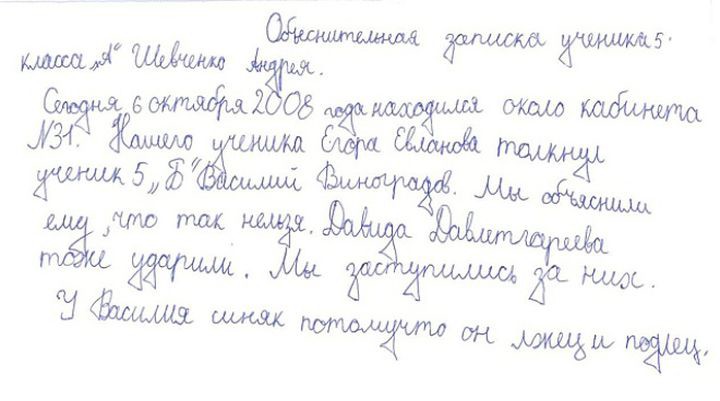 Объеснительная записка ученика 5.
класса „А“ Шевченко Андрея.
Сегодня 6 октября 2008 года находился около кабинета
N31. Нашего ученика Егора Евланова толкнул
ученик 5 „Б“ Василий Виноградов. Мы объяснили
ему, что так нельзя. Давида Давлетгареева
тоже ударили. Мы заступились за них.
У Василия синяк потомучто он лжец и подлец.